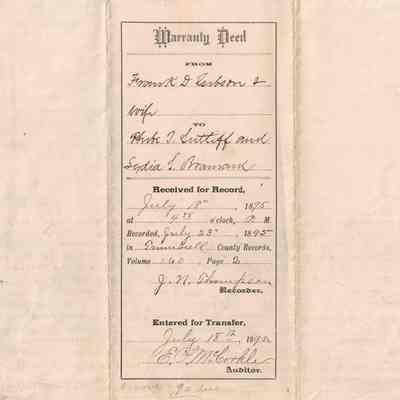 Warranty Deed
FROM
Frank D. &
wife
TO
T. Sutliff and
Lydia S.
Received for Record,
July 18" 1895
at 4 o'clock, P. M.
Recorded, July 23" 1895
in Trumbull County Records,
Volume 140, Page 2
J. N. Thompson
Recorder.
Entered for Transfer,
July 18th, 1895
E. McCorkle
Auditor.